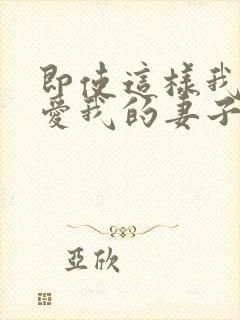 即使這樣我
愛我的妻子
亞欣